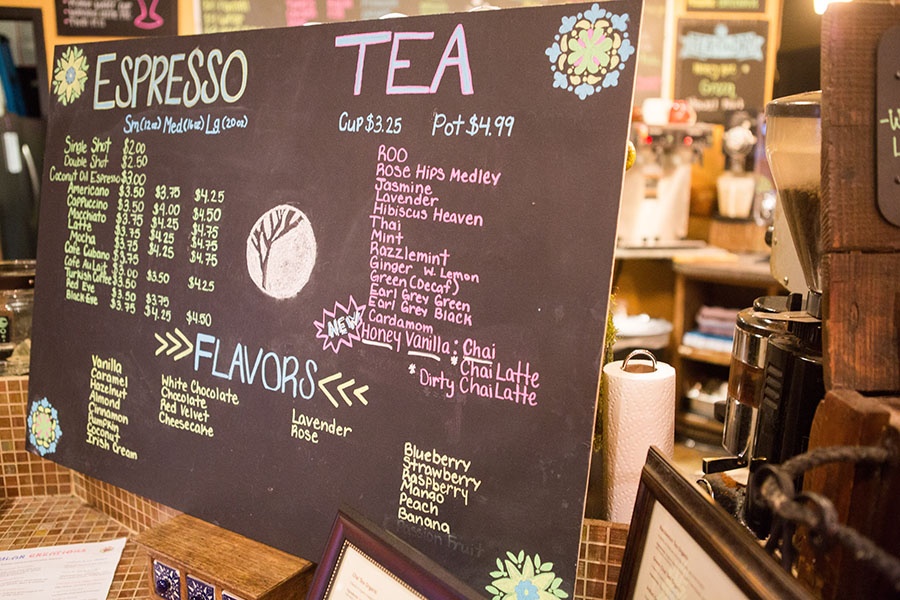 ESPRESSO
Sm(12oz) Med(16oz) Lg(20oz)
Single Shot $2.00
Double Shot $2.50
Coconut Oil Espresso $3.00
Americano $3.50 $3.75 $4.25
Cappuccino $3.50 $4.00 $4.50
Macchiato $3.75 $4.25 $4.75
Latte $3.75 $4.25 $4.75
Mocha $3.75 $4.25 $4.75
Cafe Cubano $3.75
Cafe Au Lait $3.00 $3.50 $4.25
Turkish Coffee
Red Eye $3.50 $3.75
Black Eye $3.75 $4.25 $4.50
TEA
Cup $3.25 Pot $4.99
ROO
Rose Hips Medley
Jasmine
Lavender
Hibiscus Heaven
Thai
Mint
Razzlemint
Ginger w. Lemon
Green (Decaf)
Earl Grey Green
Earl Grey Black
Cardamom
NEW
Honey Vanilla: Chai
* Chai Latte
* Dirty Chai Latte
FLAVORS
Vanilla
Caramel
Hazelnut
Almond
Cinnamon
Pumpkin
Coconut
Irish Cream
White Chocolate
Chocolate
Red Velvet
Cheesecake
Lavender
Rose
Blueberry
Strawberry
Raspberry
Mango
Peach
Banana
Passion Fruit